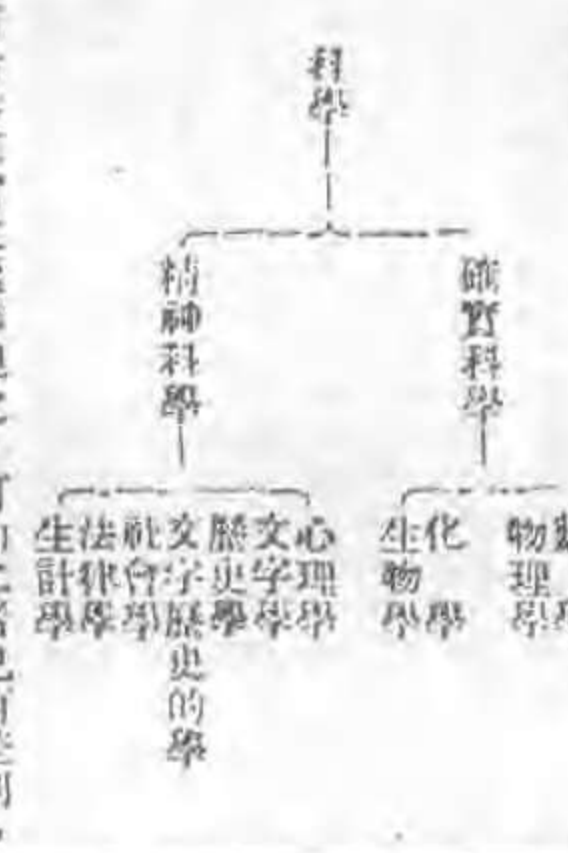 科學
確實科學
精神科學
數
物理學
化學
生物學
心理學
文字學
歷史學
文字歷史的學
社會學
法律學
生計學